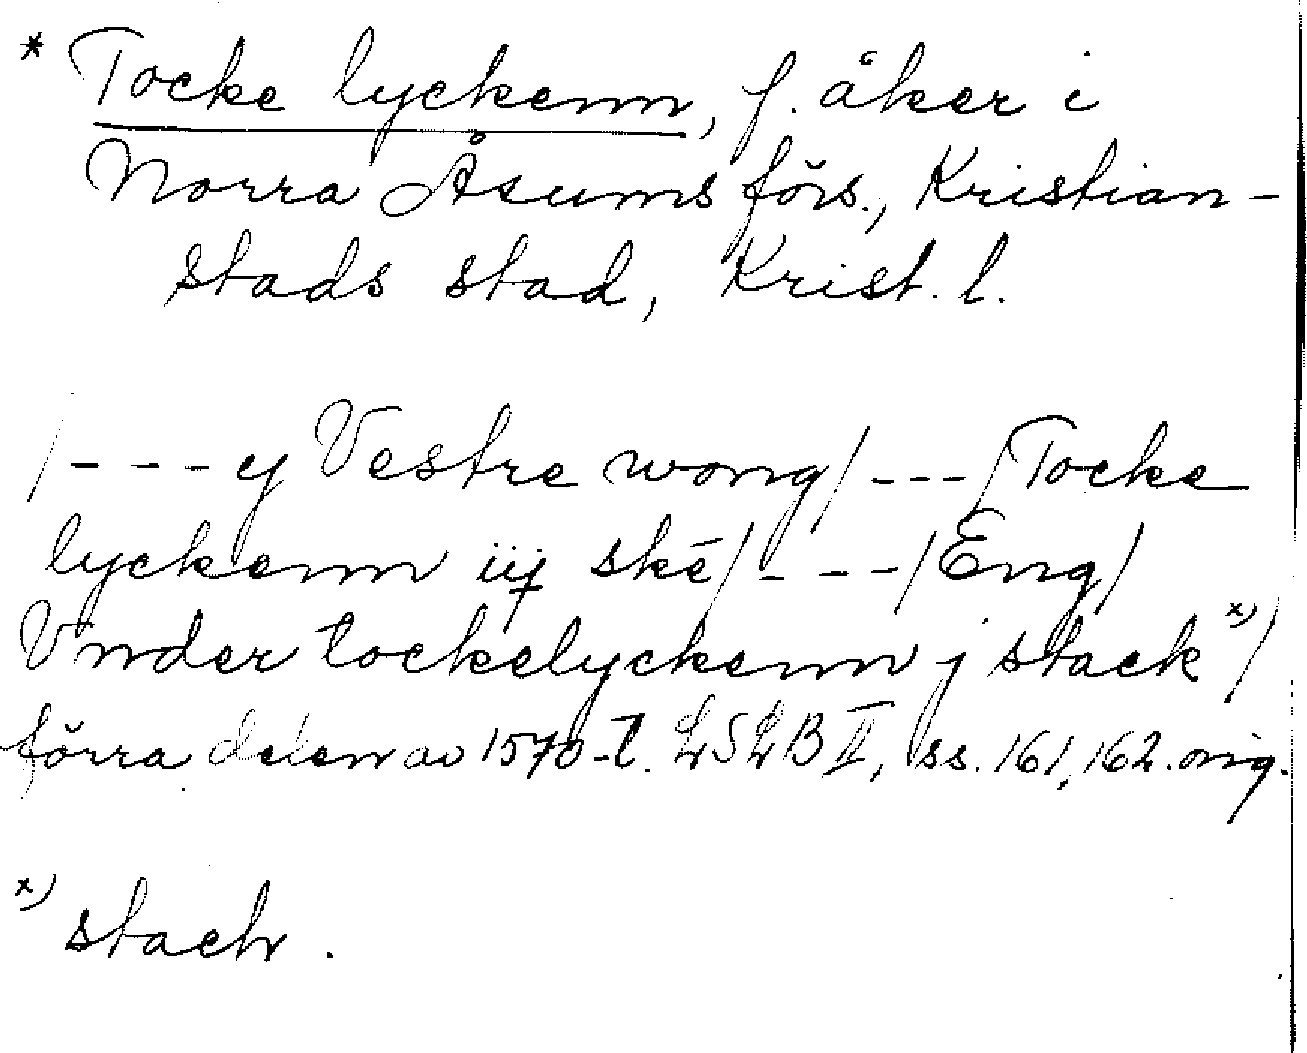 * Tocke lyckenn, f. åker i
Norra Åsums förs., Kristian-
stads stad, Krist. l.
/- - - y Vestre wong/ - - -/Tocke
lyckenn iij skē/- - -/Eng/
Vnder tockelyckenn j stack x)/
förra delen av 1570-t. LSLB II, ss. 161, 162. orig.
x) stach.